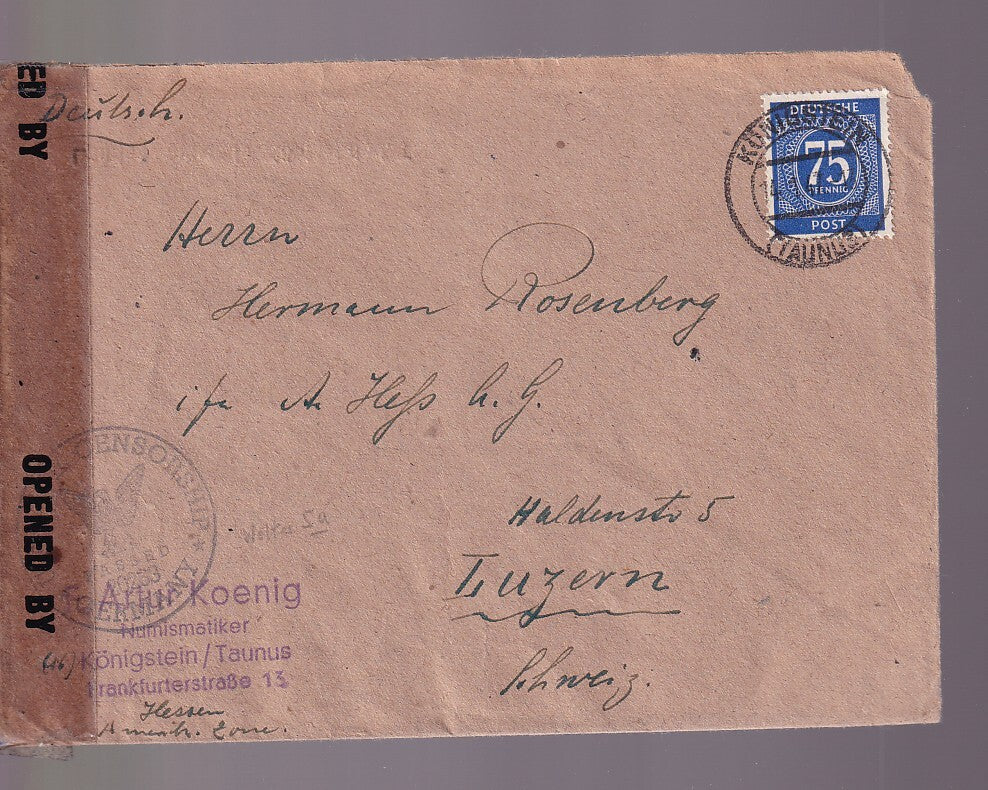 Deutsch.
DEUTSCHE
75
PFENNIG
POST
KÖNIGSTEIN
(TAUNUS)
Herrn
Hermann Rosenberg
i/fa A. Heß A. G.
Haldenstr 5
Luzern
Schweiz.
ED BY
OPENED BY
CENSORSHIP
GERMANY
Artur Koenig
Numismatiker
(16) Königstein / Taunus
Frankfurterstraße 13
Hessen
Amerik. Zone.